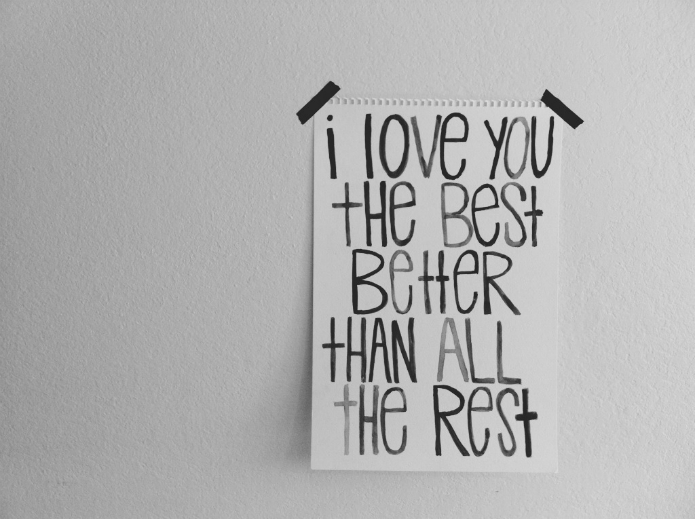 i love you
the Best
BetteR
tHAN ALL
tHe Rest